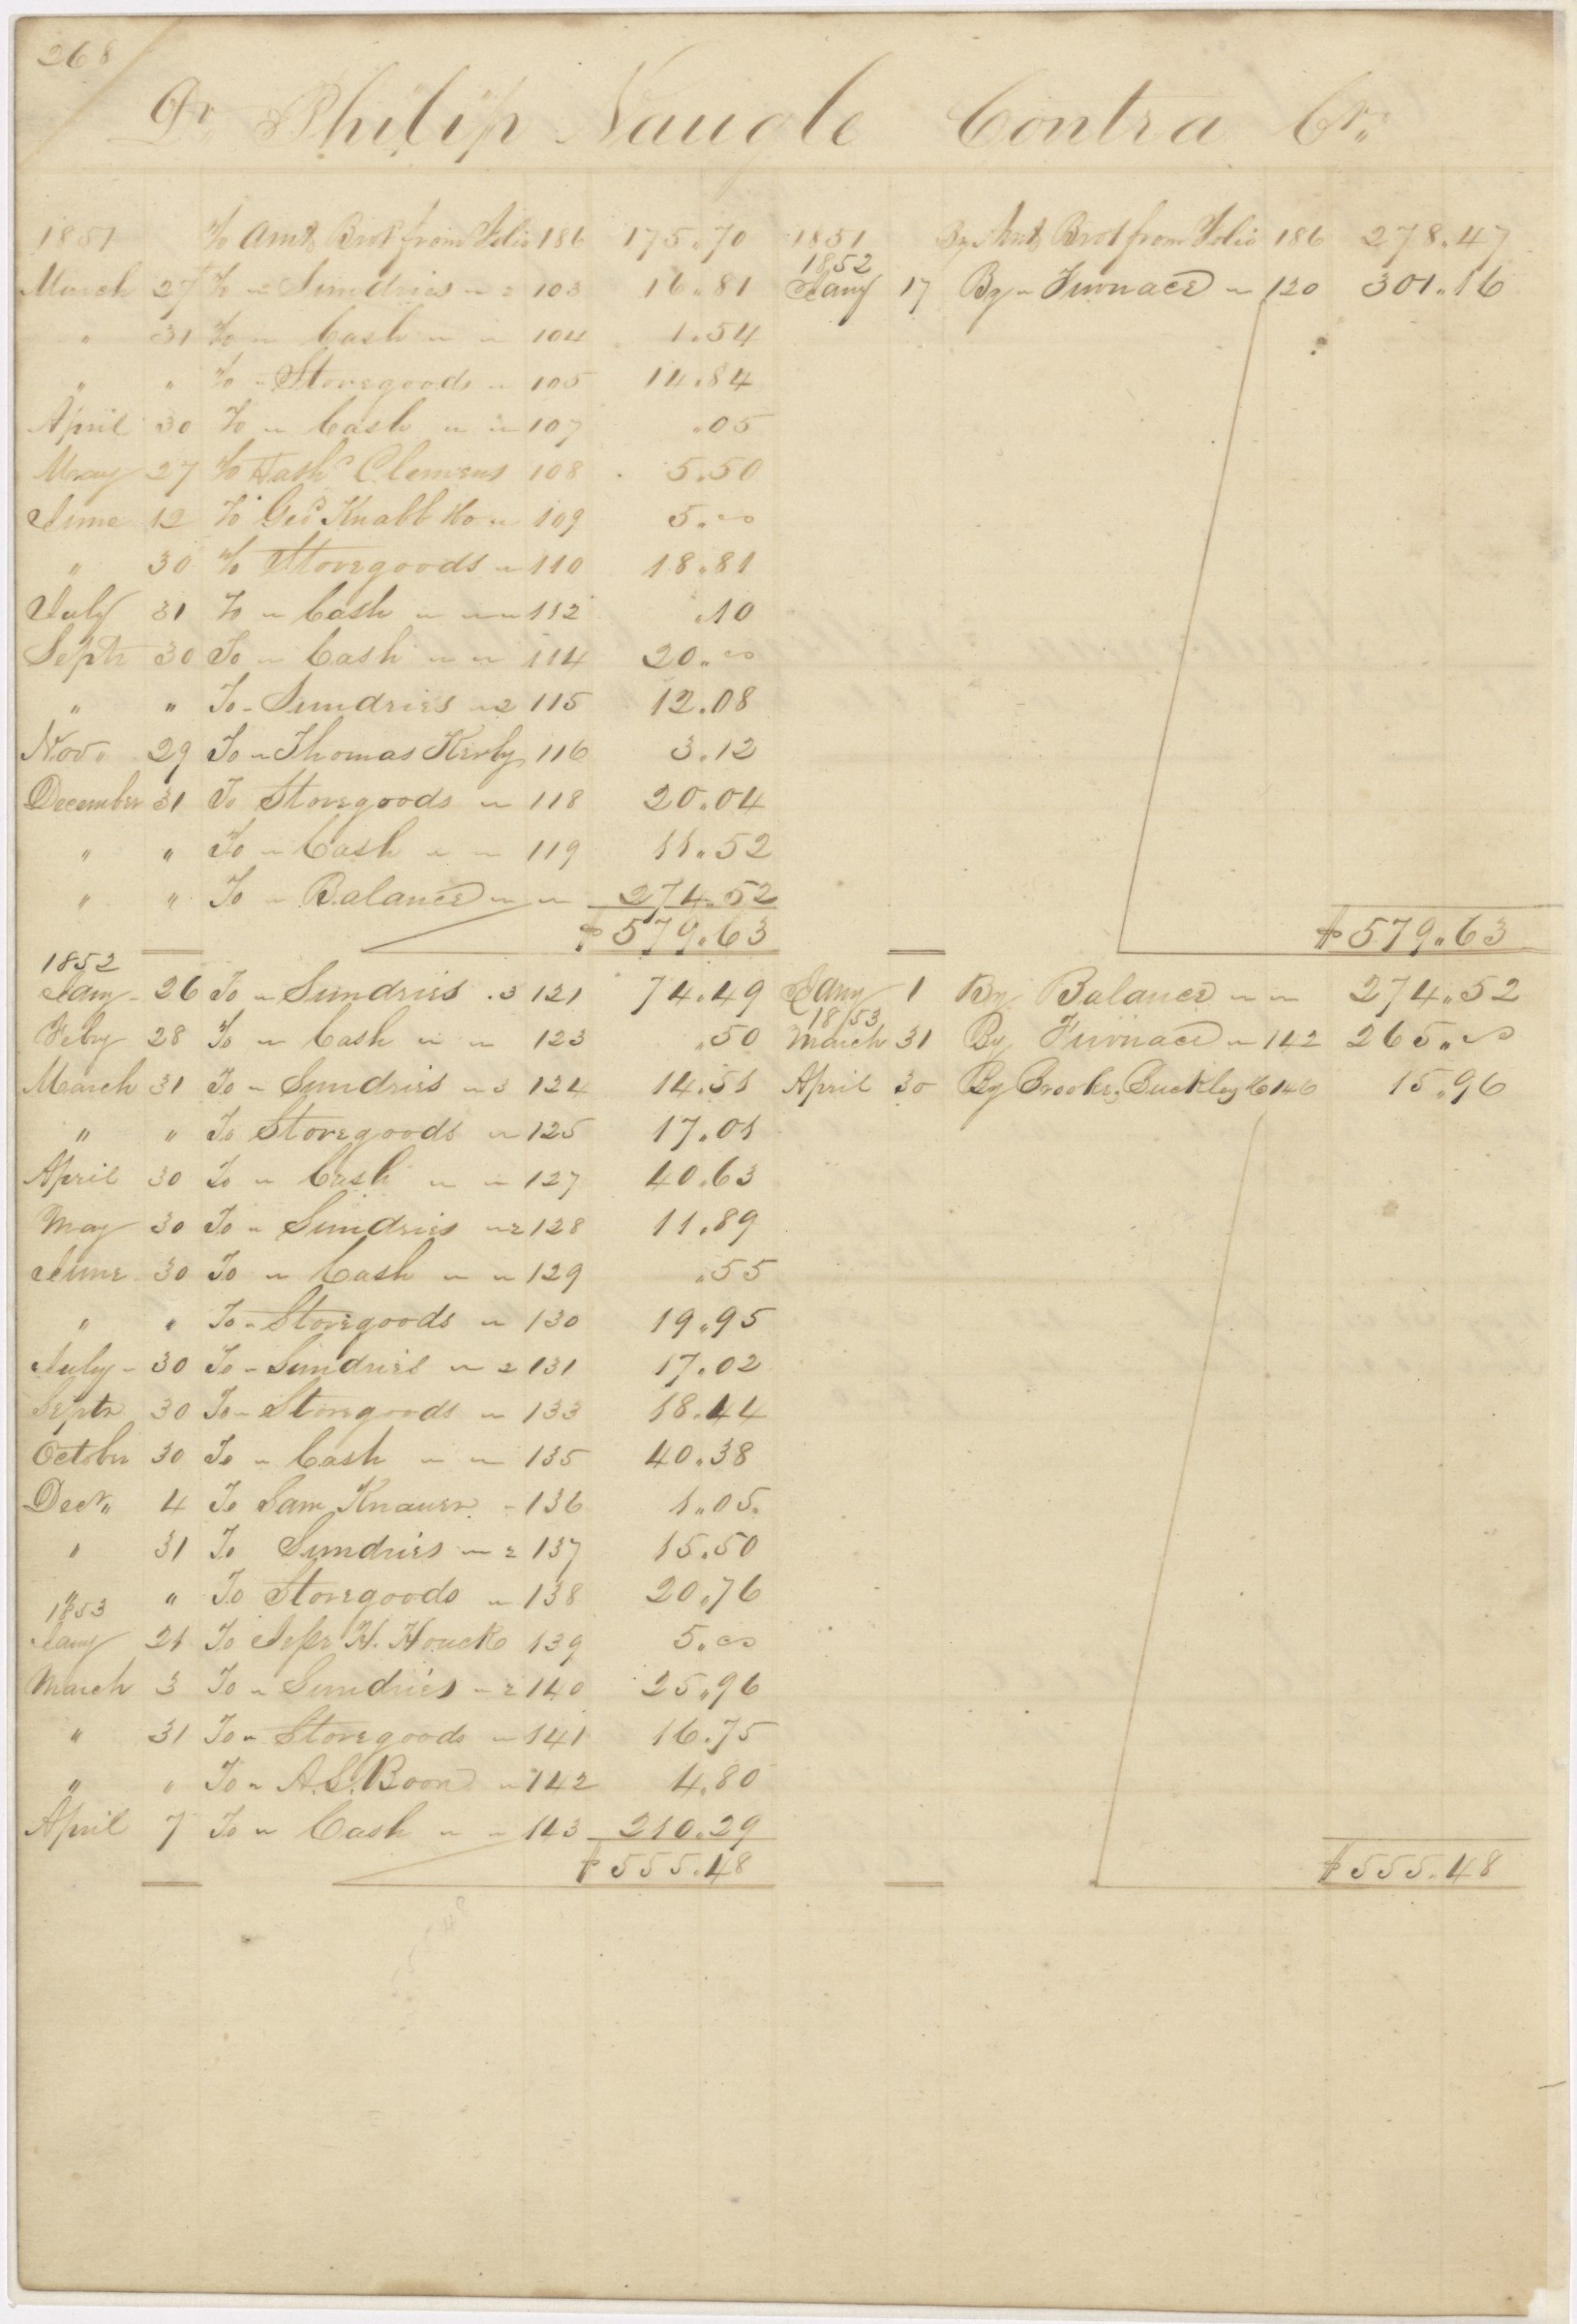 268
Dr Philip Naugle Contra Cr„
1851 To Amts Brot from Folio 186 175„70 1851 By Amts Brot from Folio 186 278„47
1852
March 27 To „ Sundries „ 2 103 16„81 Jany 17 By „ Furnace „ 120 301„16
„ 31 To „ Cash „ „ 104 1„54
„ „ To „ Storegoods „ 105 14„84
April 30 To „ Cash „ „ 107 „05
May 27 To Clemens 108 5„50
June 12 To Geo Knabb „ 109 5„00
„ 30 To Storegoods „ 110 18„81
July 31 To „ Cash „ „ 112 „10
Septr 30 To „ Cash „ „ 114 20„00
„ „ To „ Sundries „ 2 115 12.08
Nov„ 29 To „ Thomas Kerby 116 3.12
December 31 To Storegoods „ 118 20„04
„ „ To „ Cash „ „ 119 11„52
„ „ To „ Balance „ „ 274„52
$579„63 $579„63
1852
Jany „ 26 To „ Sundries „ 3 121 74„49 Jany 1 By Balance „ „ 274„52
1853
Feby 28 To „ Cash „ „ 123 „50 March 31 By Furnace „ 142 265„00
March 31 To „ Sundries „ 3 124 14„51 April 30 By Brooke, Buckley &Co 146 15„96
„ „ To Storegoods „ 125 17„01
April 30 To „ Cash „ „ 127 40„63
May 30 To „ Sundries „ 2 128 11„89
June 30 To „ Cash „ „ 129 „55
„ „ To „ Storegoods „ 130 19„95
July „ 30 To „ Sundries „ 2 131 17„02
Septr 30 To „ Storegoods „ 133 18„44
October 30 To „ Cash „ „ 135 40„38
Decr„ 4 To Sam Knauer „ 136 1„05
„ 31 To Sundries „ 2 137 15„50
„ „ To Storegoods „ 138 20„76
1853
Jany 21 To H. Houck 139 5„00
March 3 To „ Sundries „ 2 140 25„96
„ 31 To „ Storegoods „ 141 16„75
„ „ To „ A.S. Boon „ 142 4„80
April 7 To „ Cash „ „ 143 210„29
$555„48 $555„48